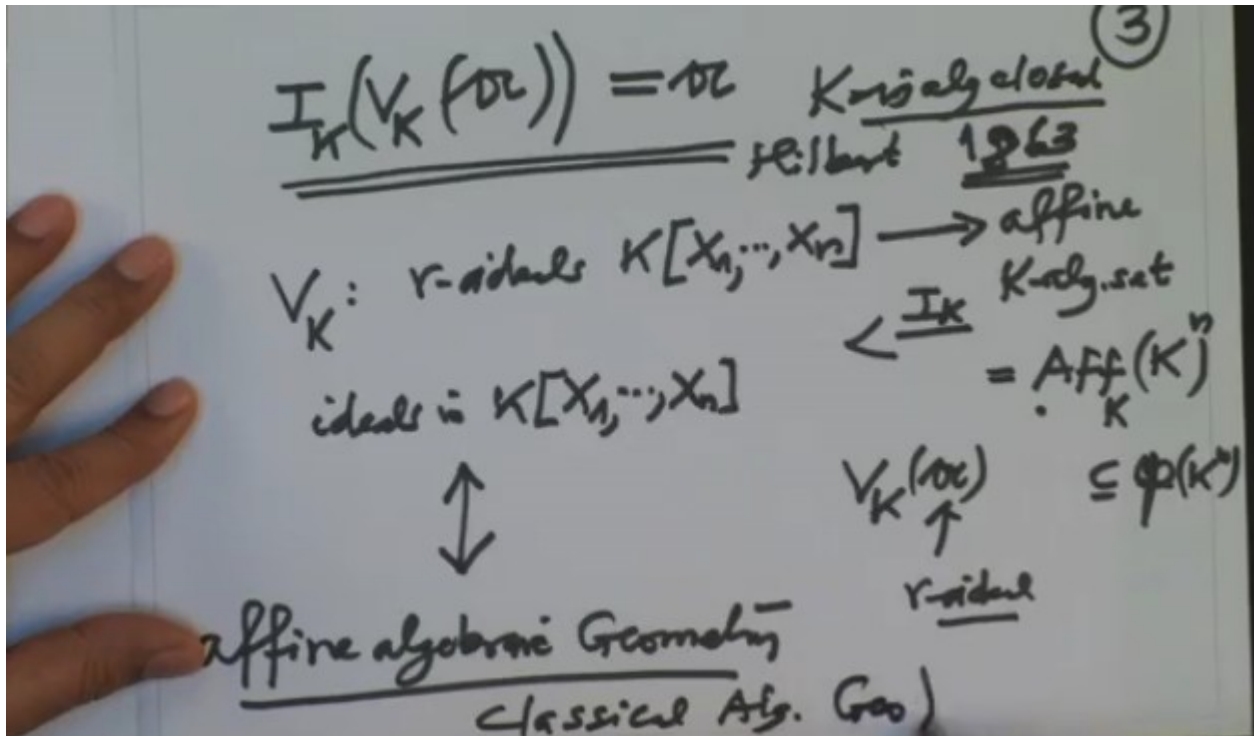 ③
I_K(V_K(𝔞)) = 𝔞 K is alg closed
Hilbert 1863
V_K: r-ideals K[X_1,...,X_n] → affine
K-alg. set
← I_K
= Aff_K(K^n)
ideals in K[X_1,...,X_n]
V_K(𝔞) ⊆ 𝔓(K^n)
↕ ↑
r-ideal
affine algebraic Geometry
classical Alg. Geo)